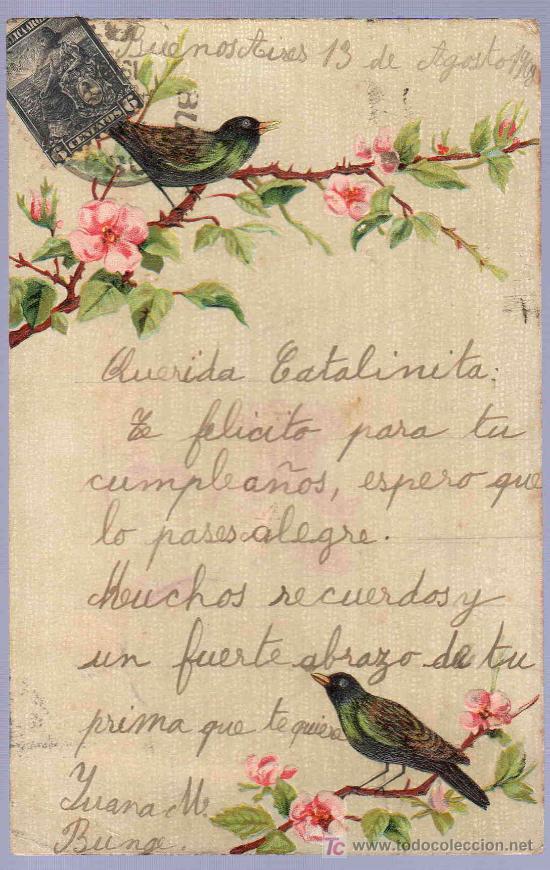 Buenos Aires 13 de Agosto
Querida Catalinita:
Te felicito para tu
cumpleaños, espero que
lo pases alegre.
Muchos recuerdos y
un fuerte abrazo de tu
prima que te quiere
Juana M.
Bunge.
6 CENTAVOS 6
TC www.todocoleccion.net